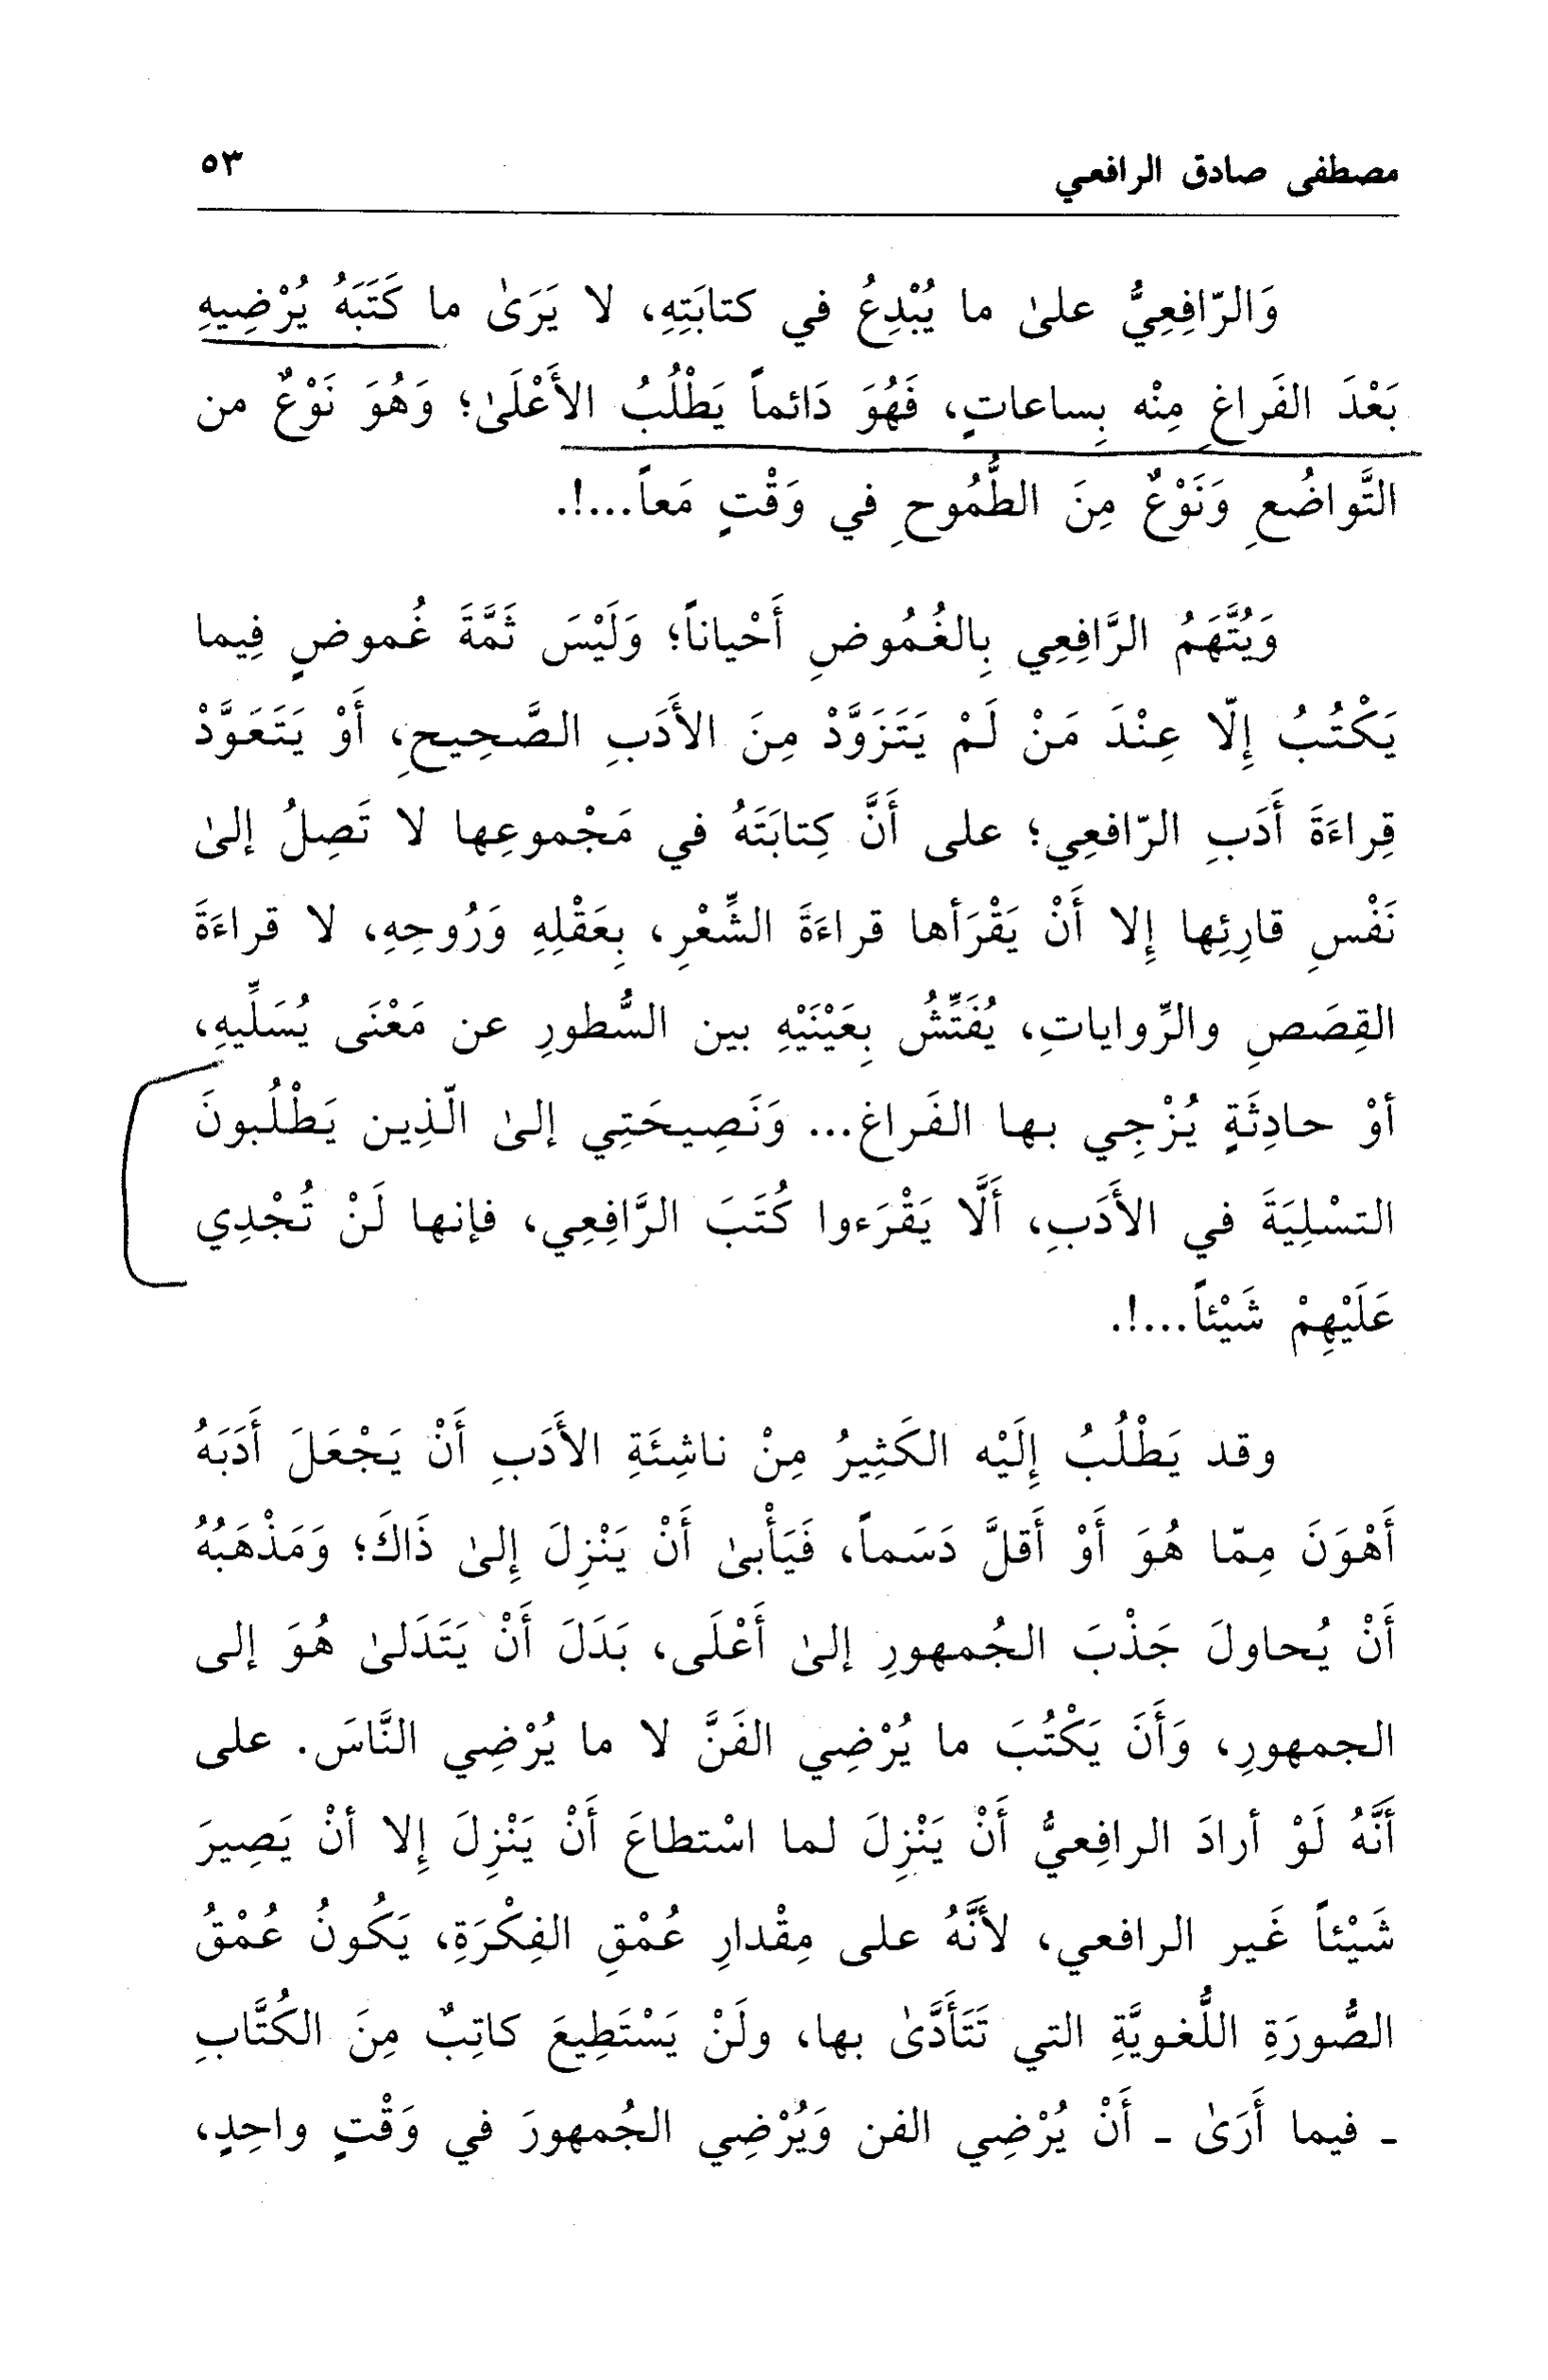 مصطفى صادق الرافعي ٥٣
وَالرّافِعِيُّ علىٰ ما يُبْدِعُ في كتابَتِهِ، لا يَرَىٰ ما كَتَبَهُ يُرْضِيهِ
بَعْدَ الفَراغِ مِنْه بِساعاتٍ، فَهُوَ دَائماً يَطْلُبُ الأَعْلَىٰ؛ وَهُوَ نَوْعٌ من
التَّواضُعِ وَنَوْعٌ مِنَ الطُّمُوحِ في وَقْتٍ مَعاً...!.
وَيُتَّهَمُ الرَّافِعِي بِالغُمُوضِ أَحْياناً؛ وَلَيْسَ ثَمَّةَ غُموضٍ فِيما
يَكْتُبُ إِلّا عِنْدَ مَنْ لَمْ يَتَزَوَّدْ مِنَ الأَدَبِ الصَّحِيحِ، أَوْ يَتَعَوَّدْ
قِراءَةَ أَدَبِ الرّافعِي؛ على أَنَّ كِتابَتَهُ في مَجْموعِها لا تَصِلُ إلىٰ
نَفْسِ قارِئِها إِلا أَنْ يَقْرَأها قراءَةَ الشِّعْرِ، بِعَقْلِهِ وَرُوحِهِ، لا قراءَةَ
القِصَصِ والرِّواياتِ، يُفَتِّشُ بِعَيْنَيْهِ بين السُّطورِ عن مَعْنَى يُسَلِّيهِ،
أوْ حادِثَةٍ يُزْجِي بها الفَراغ... وَنَصِيحَتِي إلىٰ الّذِين يَطْلُبونَ
التسْلِيَةَ في الأَدَبِ، أَلَّا يَقْرَءوا كُتَبَ الرَّافِعِي، فإنها لَنْ تُجْدِي
عَلَيْهِمْ شَيْئاً...!.
وقد يَطْلُبُ إِلَيْه الكَثِيرُ مِنْ ناشِئَةِ الأَدَبِ أَنْ يَجْعَلَ أَدَبَهُ
أَهْوَنَ مِمّا هُوَ أَوْ أَقلَّ دَسَماً، فَيَأْبىٰ أَنْ يَنْزِلَ إِلىٰ ذَاكَ؛ وَمَذْهَبُهُ
أَنْ يُحاولَ جَذْبَ الجُمهورِ إلىٰ أَعْلَى، بَدَلَ أَنْ يَتَدَلىٰ هُوَ إلى
الجمهورِ، وَأَنَ يَكْتُبَ ما يُرْضِي الفَنَّ لا ما يُرْضِي النَّاسَ. على
أَنَّهُ لَوْ أرادَ الرافِعيُّ أَنْ يَنْزِلَ لما اسْتطاعَ أَنْ يَنْزِلَ إِلا أنْ يَصِيرَ
شَيْئاً غَير الرافعي، لأَنَّهُ على مِقْدارِ عُمْقِ الفِكْرَةِ، يَكُونُ عُمْقُ
الصُّورَةِ اللُّغويَّةِ التي تَتَأَدَّىٰ بها، ولَنْ يَسْتَطِيعَ كاتِبٌ مِنَ الكُتَّابِ
ـ فيما أَرَىٰ ـ أَنْ يُرْضِي الفن وَيُرْضِي الجُمهورَ في وَقْتٍ واحِدٍ،